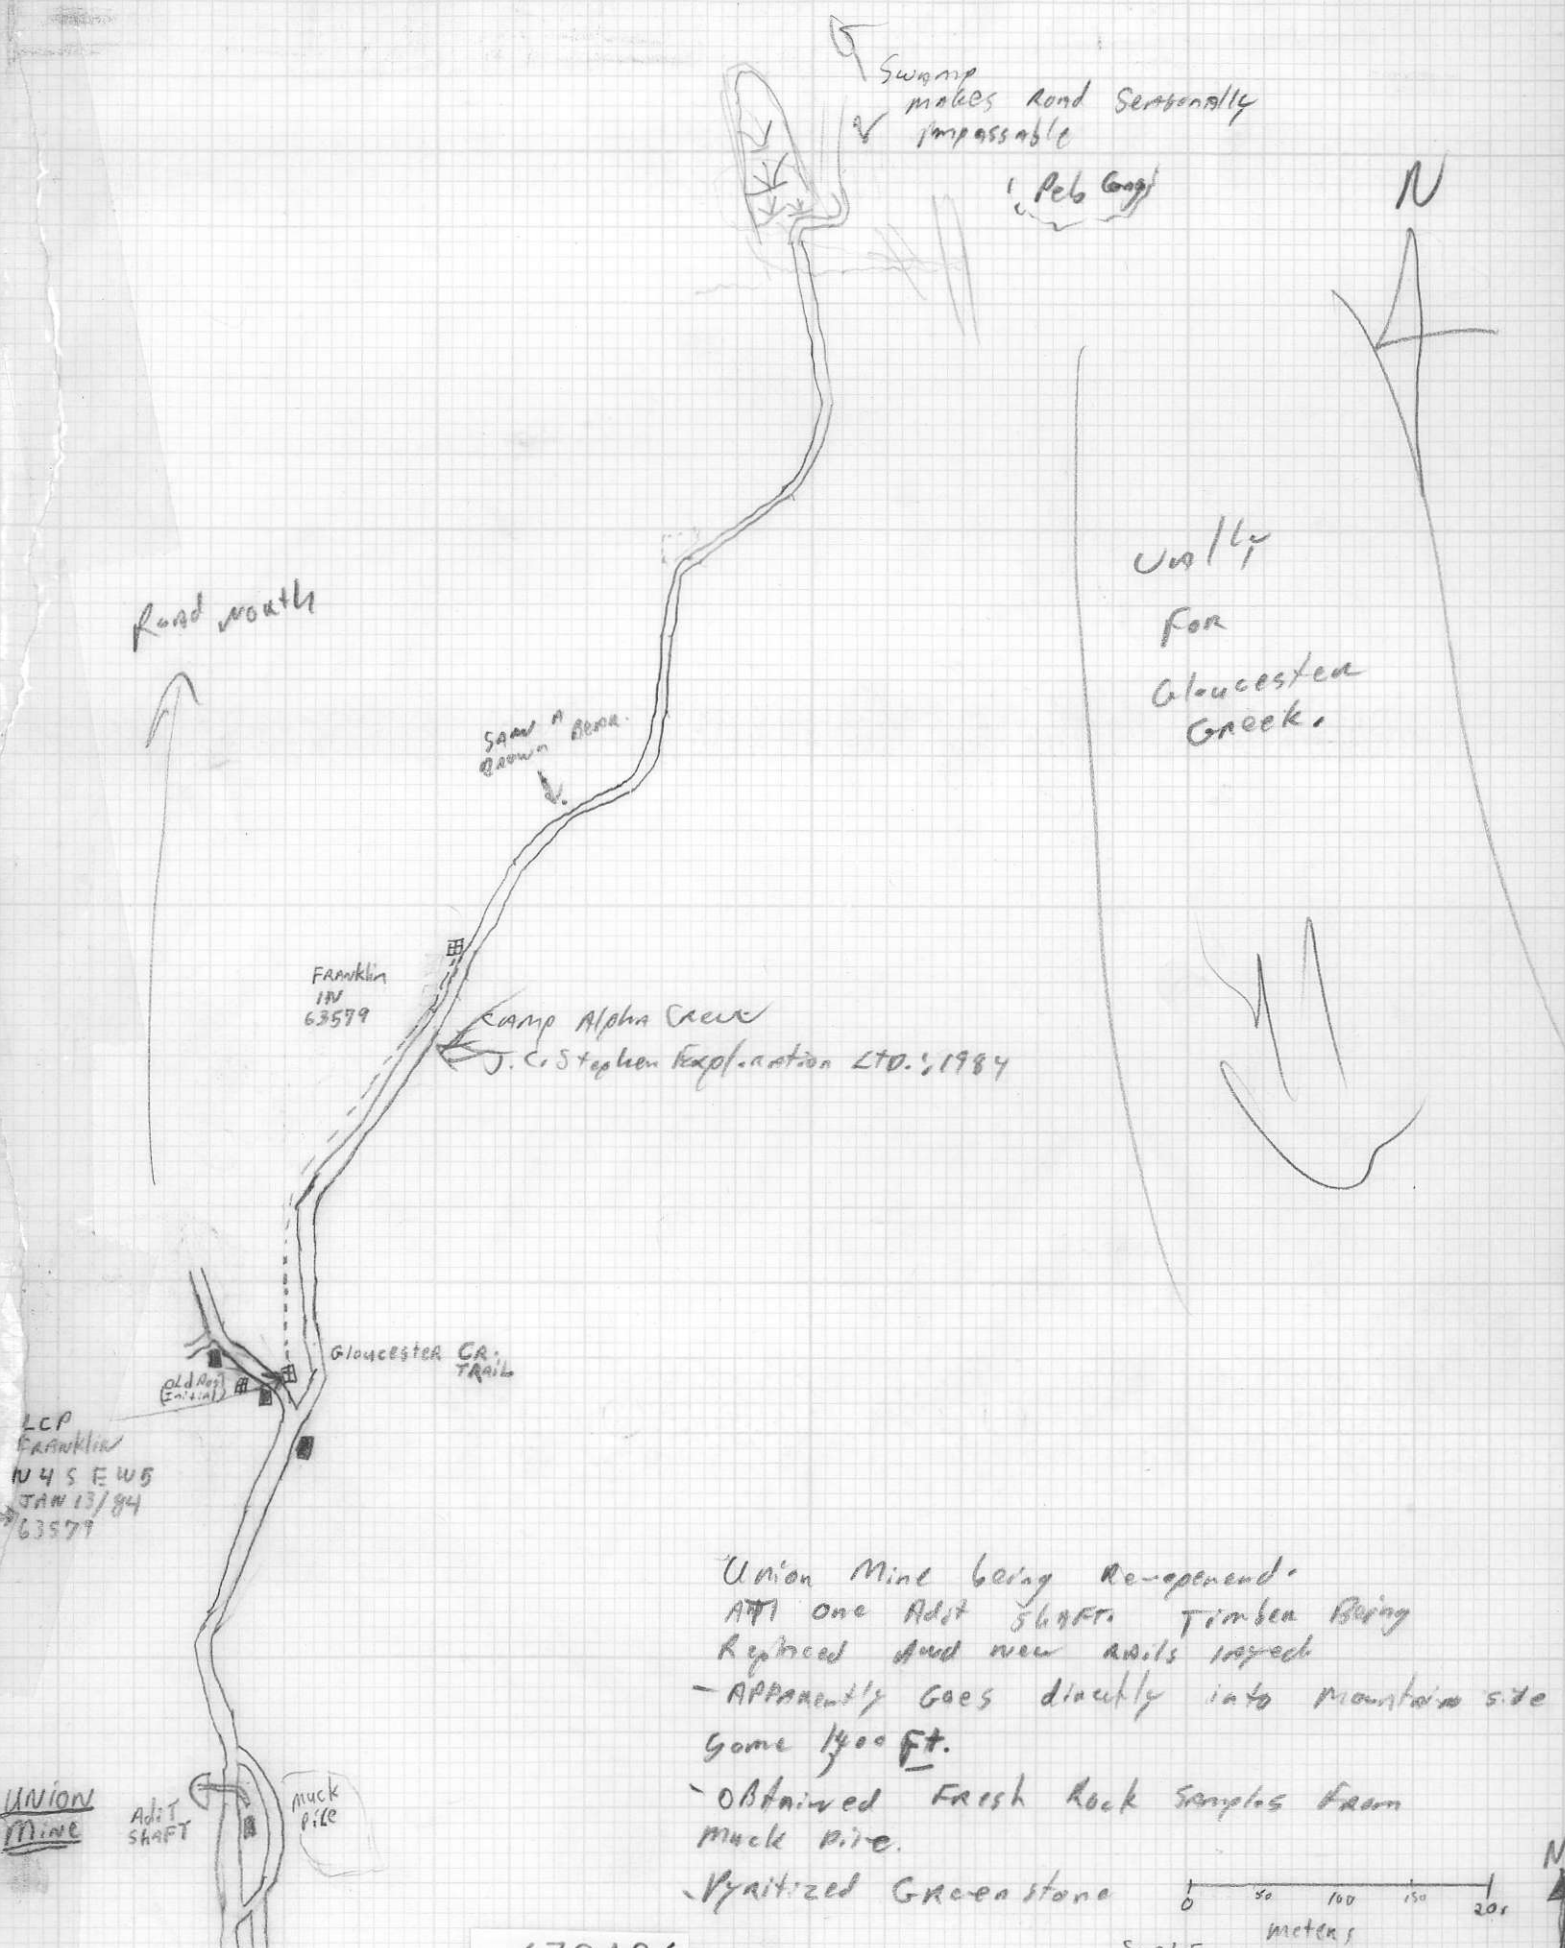 Swamp
makes Road Seasonally
Impassable
Peb Congl
N
Road North
For
Gloucester
Creek.
SAW A
Brown Bear.
FRANKlin
1N
63579
CAMP Alpha Creek
J.C. Stephen Exploration LTD.; 1984
Gloucester CR.
TRAIL
Old Post
(Initial)
LCP
FRANKlin
N 4 S E W5
JAN 13/84
63579
Union Mine being Re-opened.
ATT one Adit Shaft. Timber Being
Replaced And new RAils layed
- APPARently Goes directly into Mountain side
Some 1400 Ft.
- OBtained Fresh Rock Samples From
Muck Pile.
- Pyritized Greenstone
UNION
MINE
AdiT
SHAFT
Muck
Pile
0 50 100 150 200
meters
N